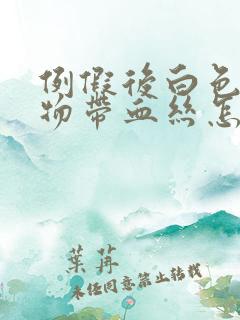 例假後白色
物帶血絲怎
葉苒
未经同意禁止转载